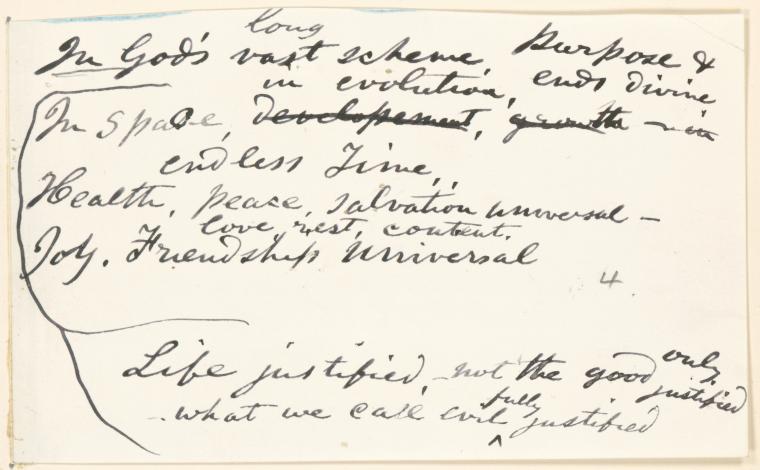 long
In God's vast scheme Purpose &
in evolution, ends divine
In Space, developement, growth — in
endless Time,
Health, peace, salvation universal —
love, rest, content.
Joy. Friendship Universal
4
Life justified, not the good only
justified
— what we call evil fully justified